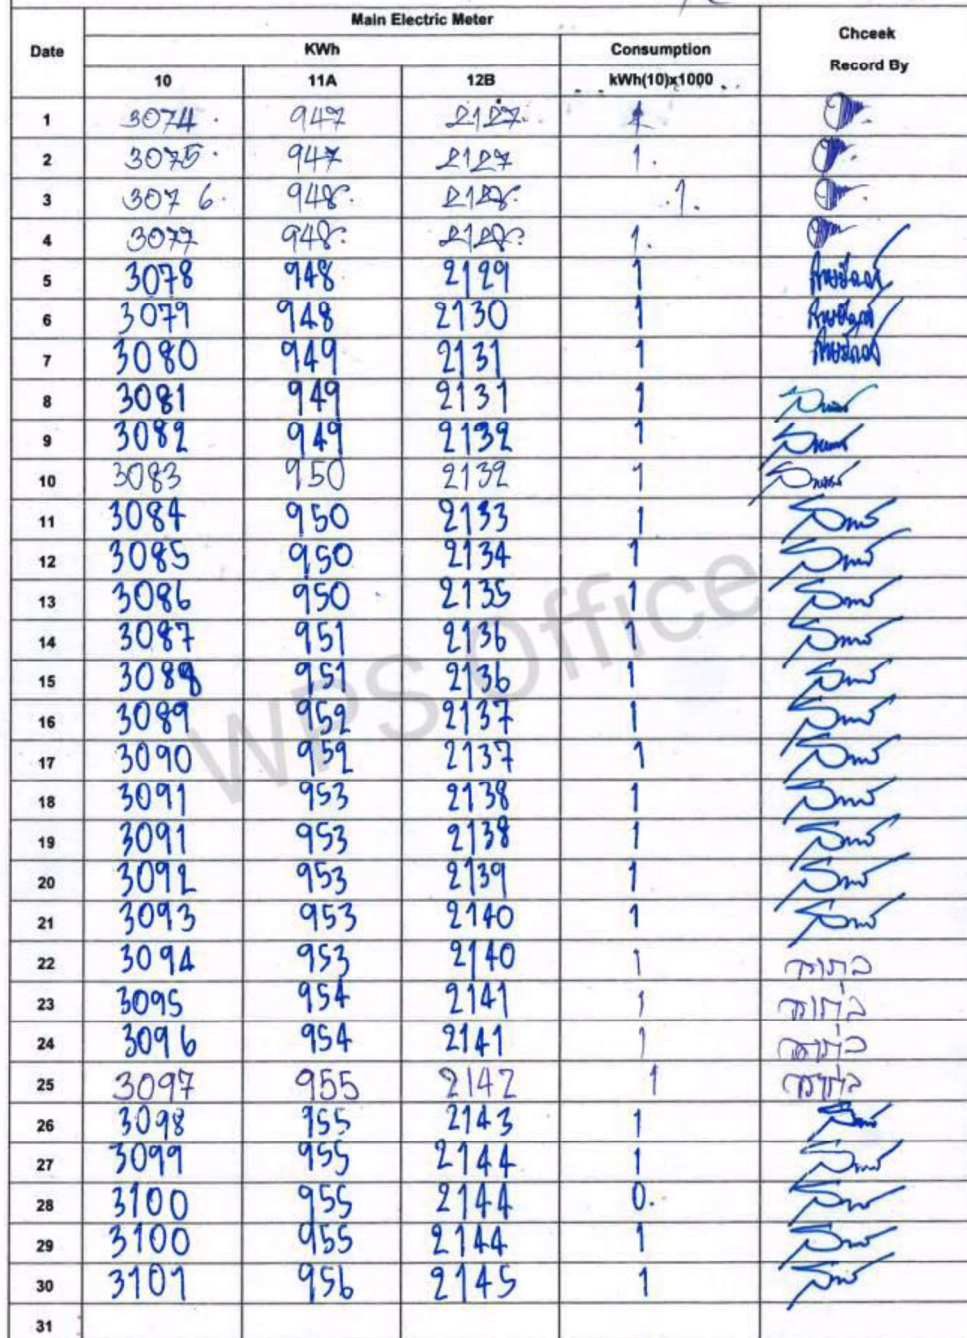 Main Electric Meter
Date KWh Consumption Chceek
10 11A 12B kWh(10)x1000 Record By
1 3074 947 2127 1
2 3075 947 2127 1
3 3076 948 2128 1
4 3077 948 2128 1
5 3078 948 2129 1
6 3079 948 2130 1
7 3080 949 2131 1
8 3081 949 2131 1
9 3082 949 2132 1
10 3083 950 2132 1
11 3084 950 2133 1
12 3085 950 2134 1
13 3086 950 2135 1
14 3087 951 2136 1
15 3088 951 2136 1
16 3089 952 2137 1
17 3090 952 2137 1
18 3091 953 2138 1
19 3091 953 2138 1
20 3092 953 2139 1
21 3093 953 2140 1
22 3094 953 2140 1
23 3095 954 2141 1
24 3096 954 2141 1
25 3097 955 2142 1
26 3098 955 2143 1
27 3099 955 2144 1
28 3100 955 2144 0.
29 3100 955 2144 1
30 3101 956 2145 1
31
WPS Office